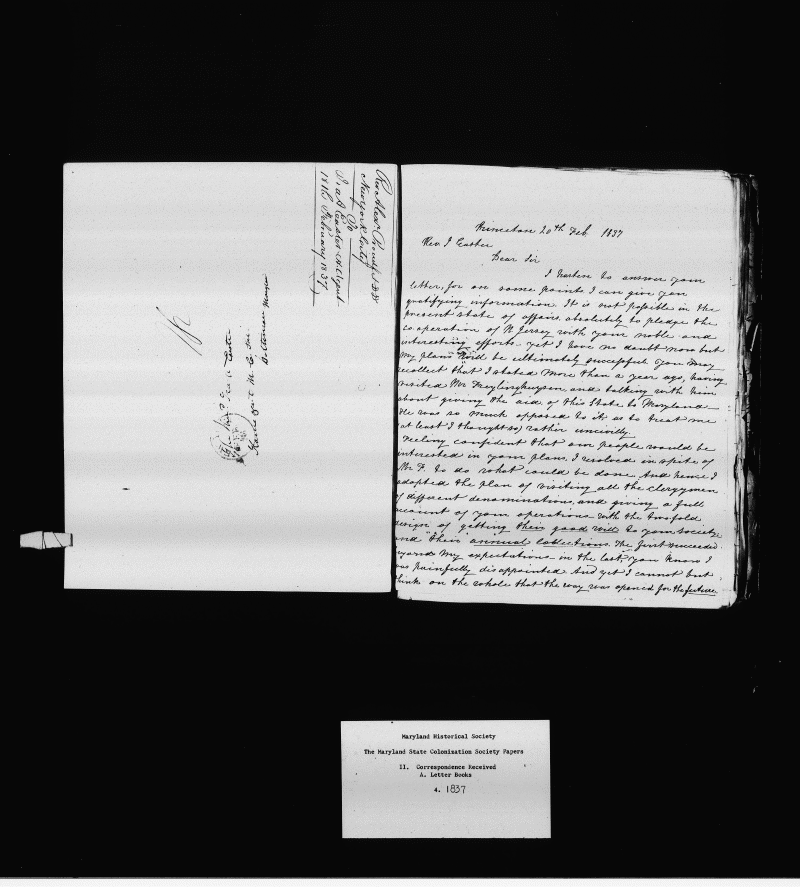 Rev Alexr Proudfit DD
New York City
To
18th February 1837
Princeton 20th Feb 1837
Rev. I Easter
Dear Sir
I hasten to answer your
letter, for on some points I can give you
gratifying information. It is not possible in the
present state of affairs absolutely to pledge the
co operation of N Jersey with your noble and
interesting efforts. yet I have no doubt now but
my plans will be ultimately successful. You may
recollect that I stated more than a year ago, having
visited Mr Freylinghuysen and talking with him
about giving the aid of this State to Maryland
He was so much opposed to it as to treat me
at least I thought so) rather uncivilly.
Feeling confident that our people would be
interested in your plans. I resolved in spite of
Mr F. to do what could be done And hence I
adopted the plan of visiting all the clergymen
of different denominations, and giving a full
account of your operations with the twofold
design of getting their good will to your society
and "their annual collections. The first succeeded
beyond my expectations - in the last, you know I
was painfully disappointed And yet I cannot but
think on the whole that the way was opened for the future
Maryland Historical Society
The Maryland State Colonization Society Papers
II. Correspondence Received
A. Letter Books
4. 1837